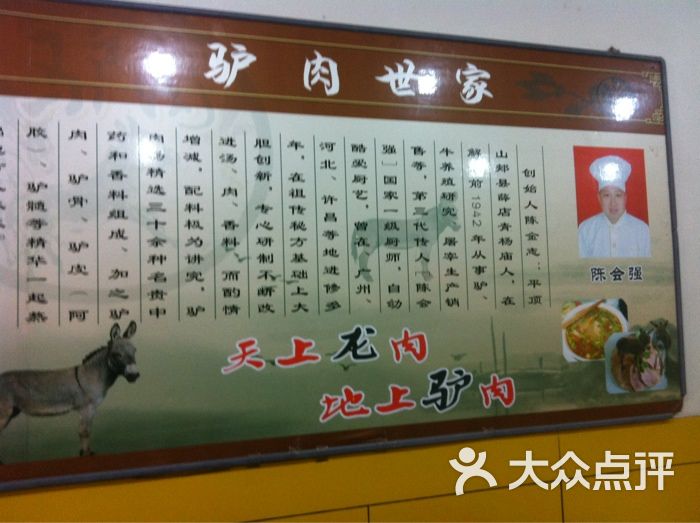 驴肉世家
创始人陈金志：平顶
山郏县薛店青杨庙人，在
解放前1942年从事驴、
牛养殖研究、屠宰生产销
售等，第三代传人〔陈会
强〕国家一级厨师，自幼
酷爱厨艺，曾在广州、
河北、许昌等地进修多
年，在祖传秘方基础上大
胆创新，专心研制不断改
进汤、肉、香料，而酌情
增减，配料极为讲究，驴
肉汤精选三十余种名贵中
药和香料组成、加之驴
肉、驴骨、驴皮（阿
胶）、驴髓等精华一起熬
陈会强
天上龙肉
地上驴肉
大众点评